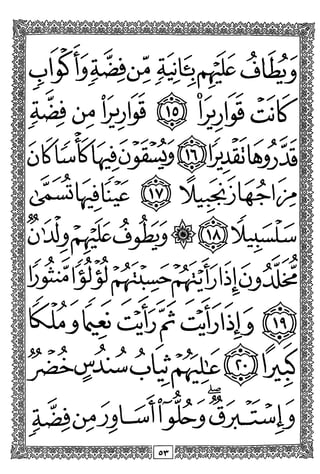 وَيُطَافُ عَلَيْهِم بِـَٔانِيَةٍ مِّن فِضَّةٍ وَأَكْوَابٍ
كَانَتْ قَوَارِيرَا۠ ١٥ قَوَارِيرَا۟ مِن فِضَّةٍ
قَدَّرُوهَا تَقْدِيرًا ١٦ وَيُسْقَوْنَ فِيهَا كَأْسًا كَانَ
مِزَاجُهَا زَنجَبِيلًا ١٧ عَيْنًا فِيهَا تُسَمَّىٰ
سَلْسَبِيلًا ١٨ ۞ وَيَطُوفُ عَلَيْهِمْ وِلْدَٰنٌ
مُّخَلَّدُونَ إِذَا رَأَيْتَهُمْ حَسِبْتَهُمْ لُؤْلُؤًا مَّنثُورًا
١٩ وَإِذَا رَأَيْتَ ثَمَّ رَأَيْتَ نَعِيمًا وَمُلْكًا
كَبِيرًا ٢٠ عَـٰلِيَهُمْ ثِيَابُ سُندُسٍ خُضْرٌ
وَإِسْتَبْرَقٌ ۖ وَحُلُّوٓا۟ أَسَاوِرَ مِن فِضَّةٍ
٥٣